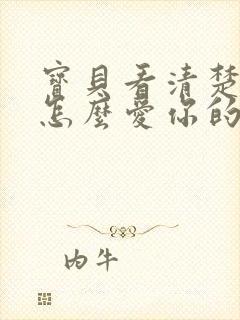 寶貝看清楚
怎麼愛你的
內牛